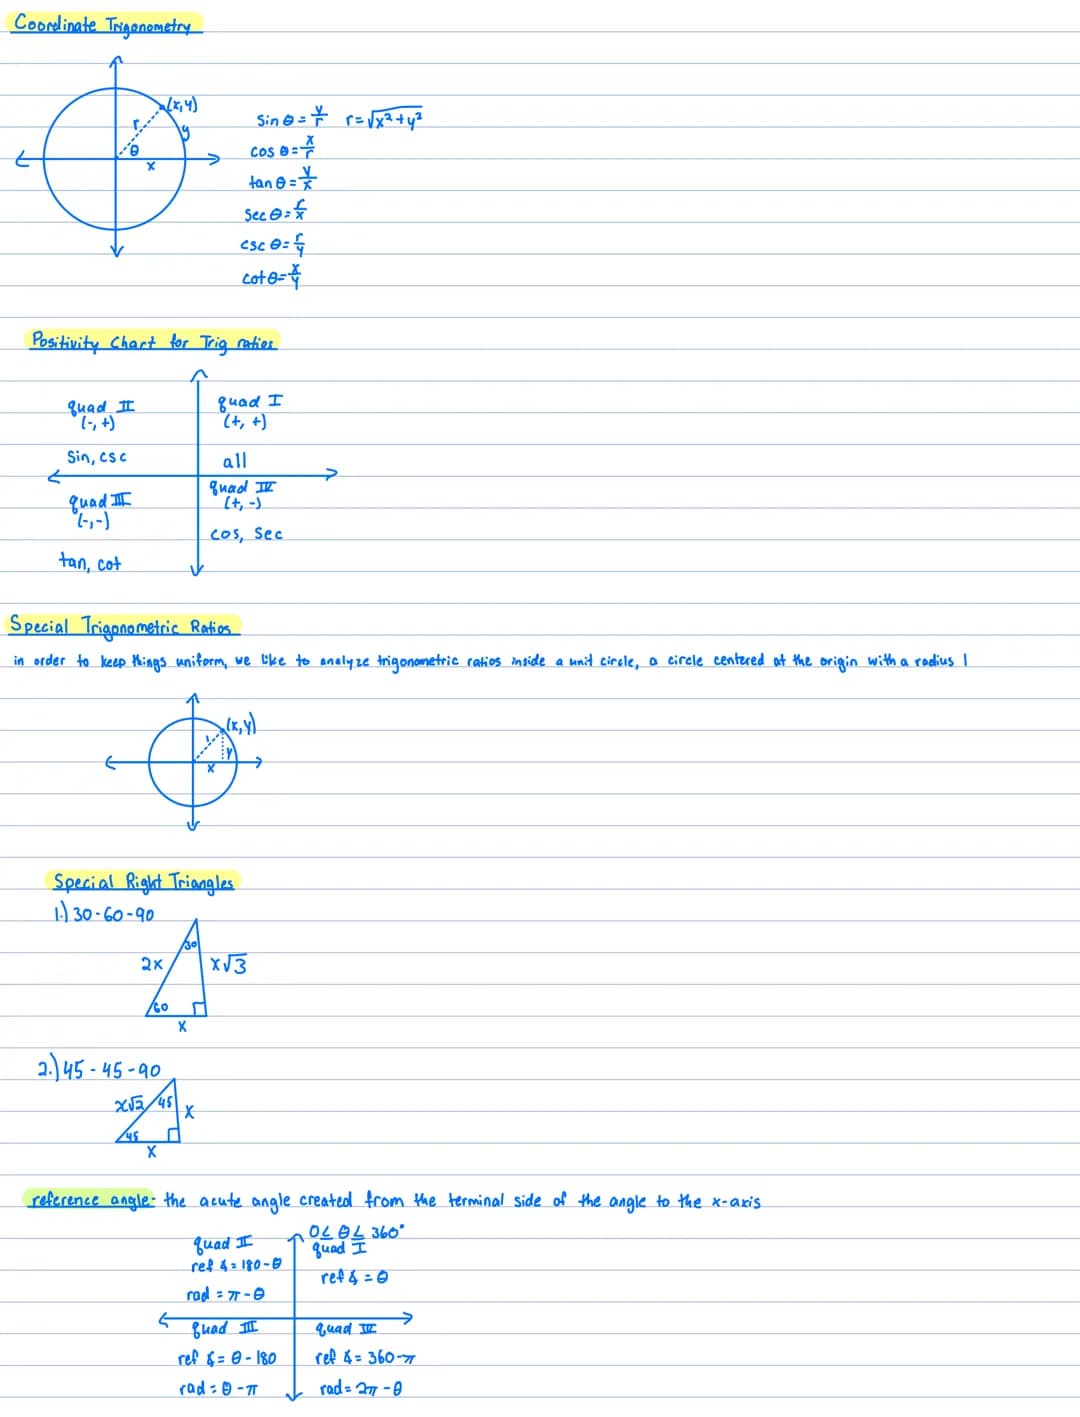 Coordinate Trigonometry
(x,y)
r
y
θ
x
sin θ = y/r r=√x²+y²
cos θ = x/r
tan θ = y/x
sec θ = r/x
csc θ = r/y
cot θ = x/y
Positivity Chart for Trig ratios
quad II
(-, +)
sin, csc
quad I
(+, +)
all
quad III
(-,-)
tan, cot
quad IV
(+, -)
cos, sec
Special Trigonometric Ratios
in order to keep things uniform, we like to analyze trigonometric ratios inside a unit circle, a circle centered at the origin with a radius 1
(x,y)
1
y
x
Special Right Triangles
1.) 30-60-90
30
2x
x√3
60
x
2.) 45-45-90
x√2
45
x
45
x
reference angle- the acute angle created from the terminal side of the angle to the x-axis
0≤θ≤360°
quad II
ref ∡ = 180-θ
rad = π-θ
quad I
ref ∡ = θ
quad III
ref ∡ = θ-180
rad = θ-π
quad IV
ref ∡ = 360-π
rad = 2π-θ